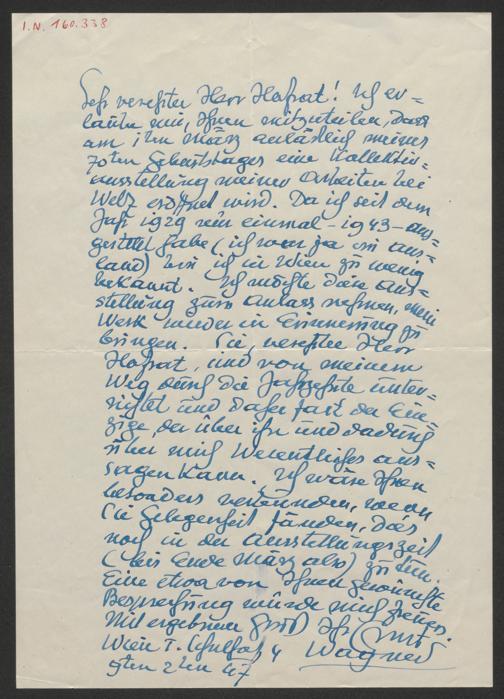 I.N. 160.338
Sehr verehrter Herr Hofrat! Ich er=
laube mir, Ihnen mitzuteilen, dass
am 1ten März anlässlich meines
70ten Geburtstages eine Kollektiv=
ausstellung meiner Arbeiten bei
Welz eröffnet wird. Da ich seit dem
Jahr 1929 nur einmal - 1943 - aus=
gestellt habe (ich war ja im Aus=
land) bin ich in Wien zu wenig
bekannt. Ich möchte diese Aus=
stellung zum Anlass nehmen, mein
Werk wieder in Erinnerung zu
bringen. Sie, verehrter Herr
Hofrat, sind von meinem
Weg durch die Jahrzehnte unter=
richtet und daher fast der Ein=
zige, der über ihn und dadurch
über mich Wesentliches aus=
sagen kann. Ich wäre Ihnen
besonders verbunden, wenn
Sie Gelegenheit fänden, dies
noch in der Ausstellungszeit
(bis Ende März also) zu tun.
Eine etwa von Ihnen gewünschte
Besprechung würde mich freuen.
Mit ergebenem Gruß Ihr
Wien I. Schulhof 4 Wagner
9ten 2ten 47